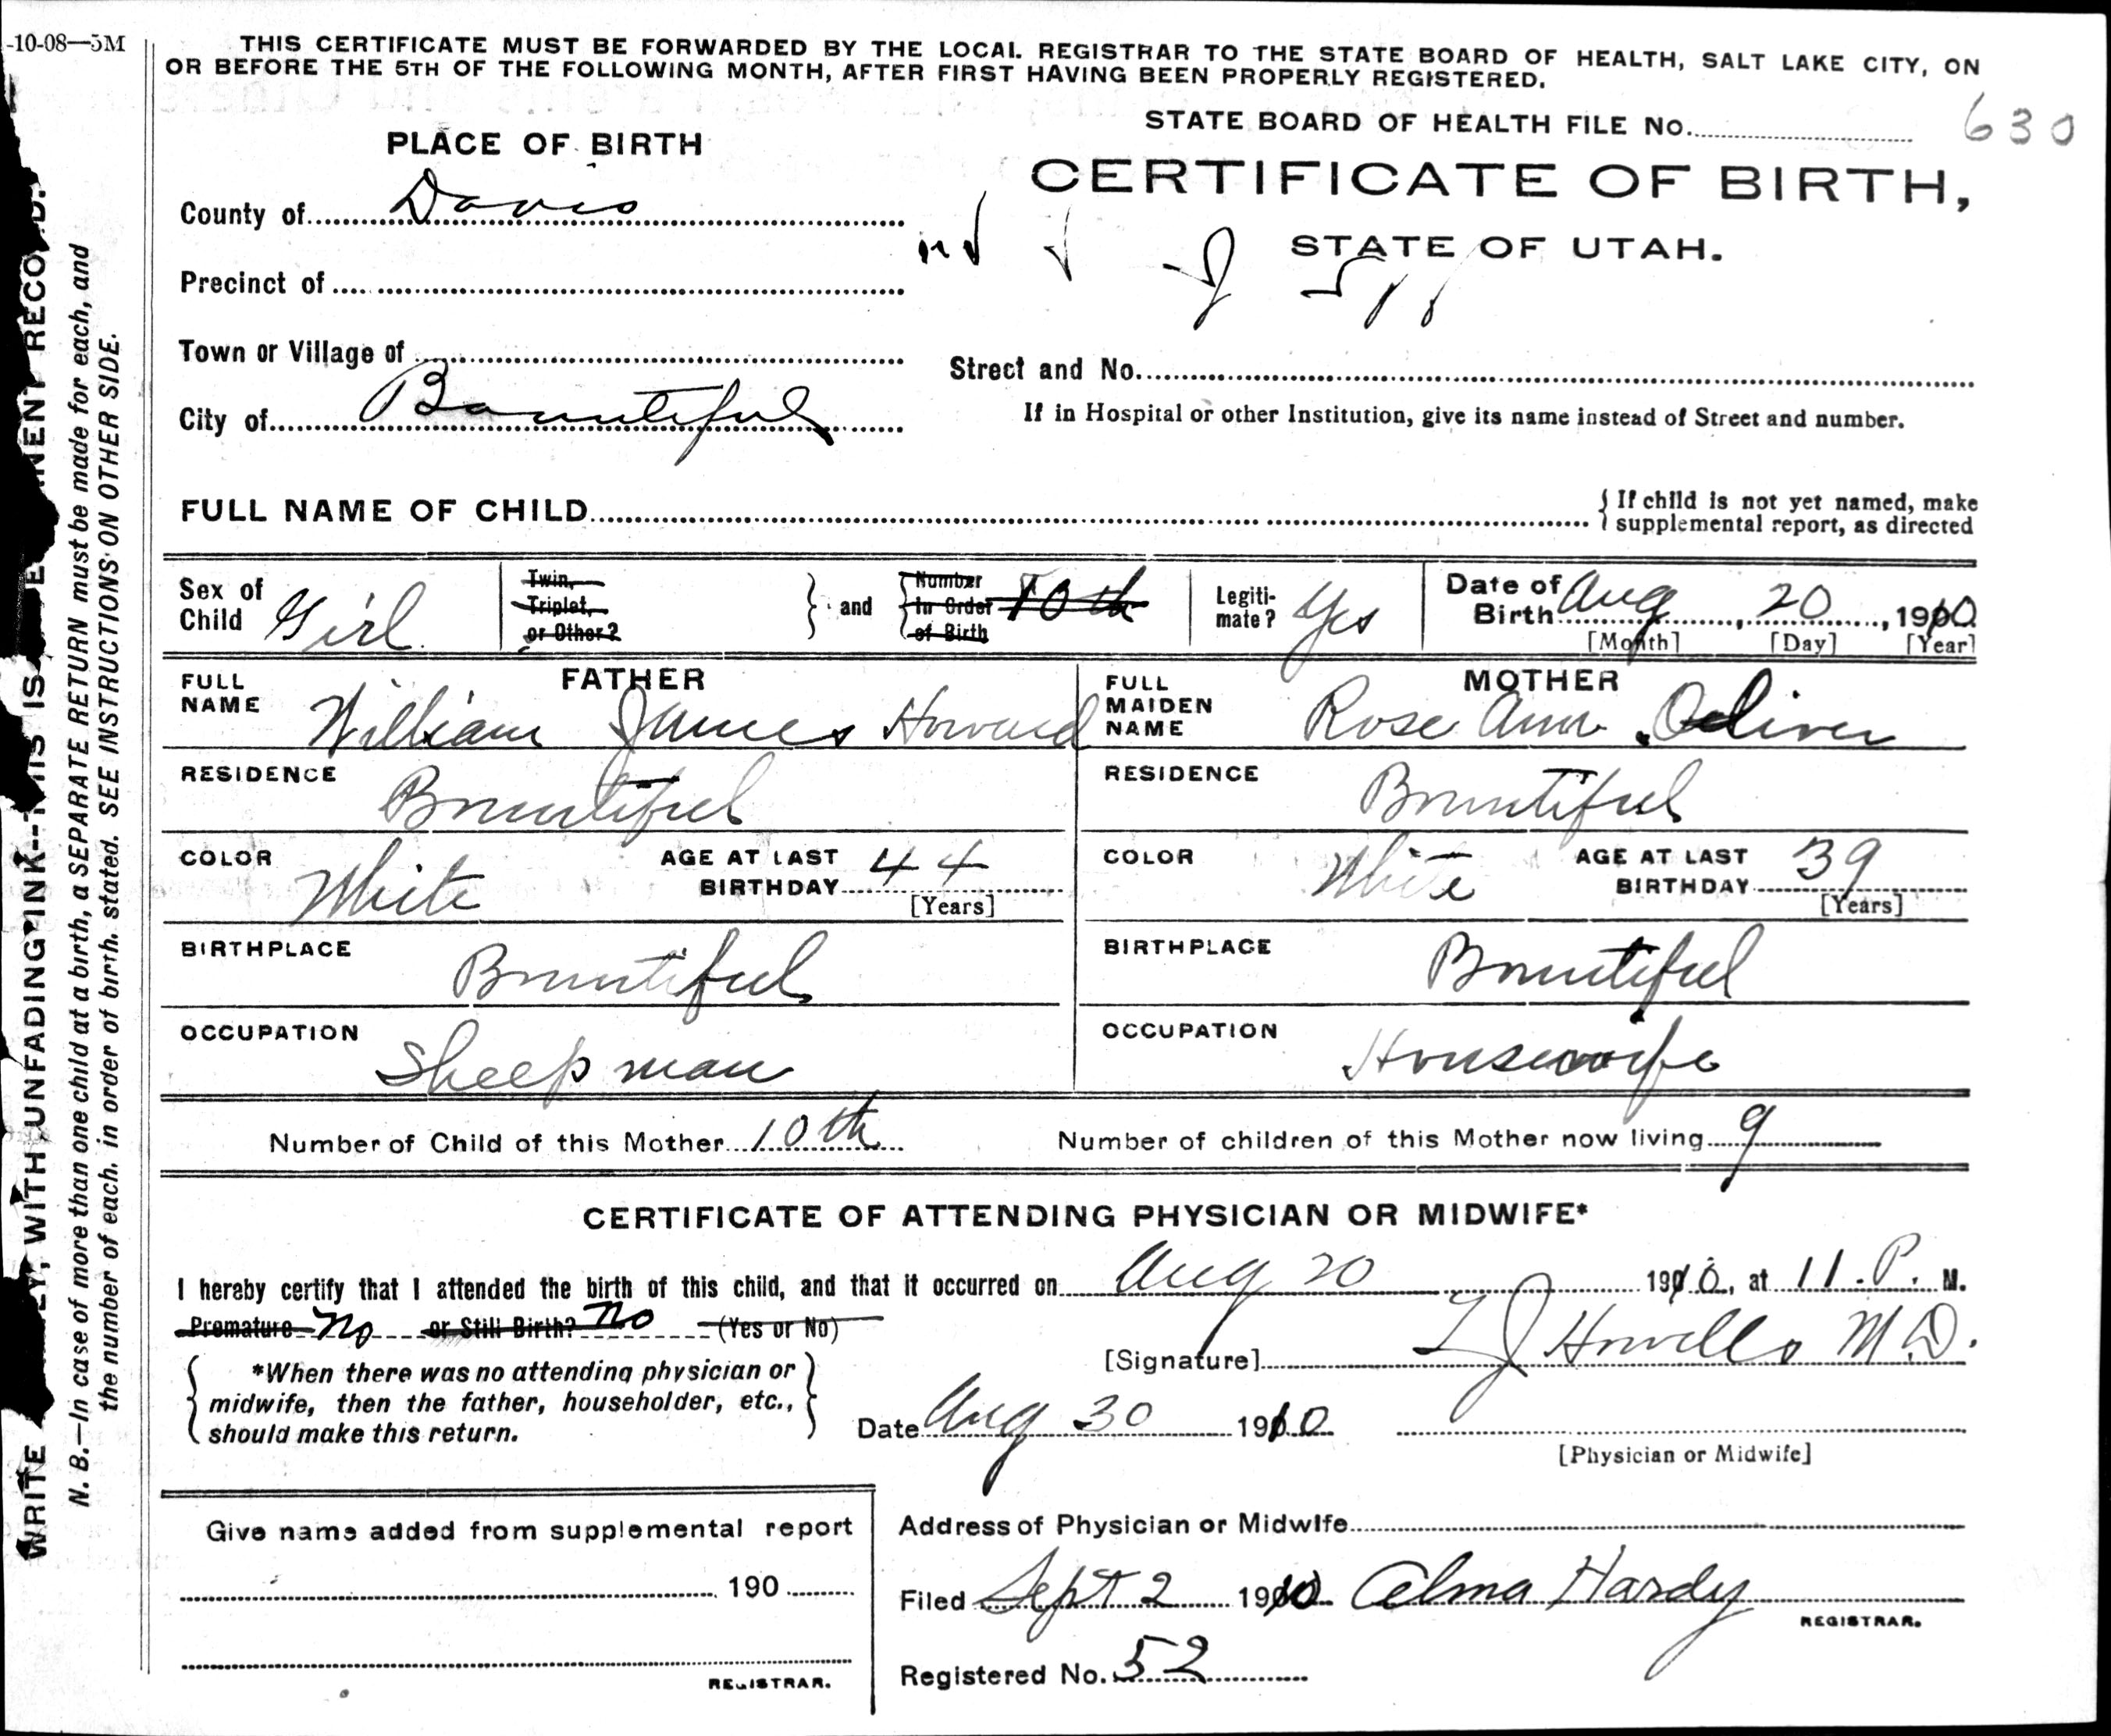 -10-08—5M
THIS CERTIFICATE MUST BE FORWARDED BY THE LOCAL REGISTRAR TO THE STATE BOARD OF HEALTH, SALT LAKE CITY, ON
OR BEFORE THE 5TH OF THE FOLLOWING MONTH, AFTER FIRST HAVING BEEN PROPERLY REGISTERED.
STATE BOARD OF HEALTH FILE No. 630
PLACE OF BIRTH
CERTIFICATE OF BIRTH,
STATE OF UTAH.
County of Davis
Precinct of
Town or Village of
Street and No.
City of Bountiful
If in Hospital or other Institution, give its name instead of Street and number.
FULL NAME OF CHILD
If child is not yet named, make
supplemental report, as directed
Sex of Child Girl
Twin, Triplet, or Other?
and
Number In Order of Birth 10th
Legiti-mate? Yes
Date of Birth Aug, 20, 1910
[Month] [Day] [Year]
FATHER
FULL NAME William James Howard
MOTHER
FULL MAIDEN NAME Rose Ann Oliver
RESIDENCE Bountiful
RESIDENCE Bountiful
COLOR White AGE AT LAST BIRTHDAY 44 [Years]
COLOR White AGE AT LAST BIRTHDAY 39 [Years]
BIRTHPLACE Bountiful
BIRTHPLACE Bountiful
OCCUPATION Sheep man
OCCUPATION Housewife
Number of Child of this Mother 10th
Number of children of this Mother now living 9
CERTIFICATE OF ATTENDING PHYSICIAN OR MIDWIFE*
I hereby certify that I attended the birth of this child, and that it occurred on Aug 20 1910, at 11 P. M.
Premature No or Still Birth? No (Yes or No)
[Signature] Howells M.D.
*When there was no attending physician or
midwife, then the father, householder, etc.,
should make this return.
Date Aug 30 1910
[Physician or Midwife]
Give name added from supplemental report
190
REGISTRAR.
Address of Physician or Midwife
Filed Sept 2 1910 Alma Hardy
REGISTRAR.
Registered No. 52
WRITE WITH UNFADING INK--THIS IS
N. B.—In case of more than one child at a birth, a SEPARATE RETURN must be made for each, and
the number of each, in order of birth, stated. SEE INSTRUCTIONS ON OTHER SIDE.